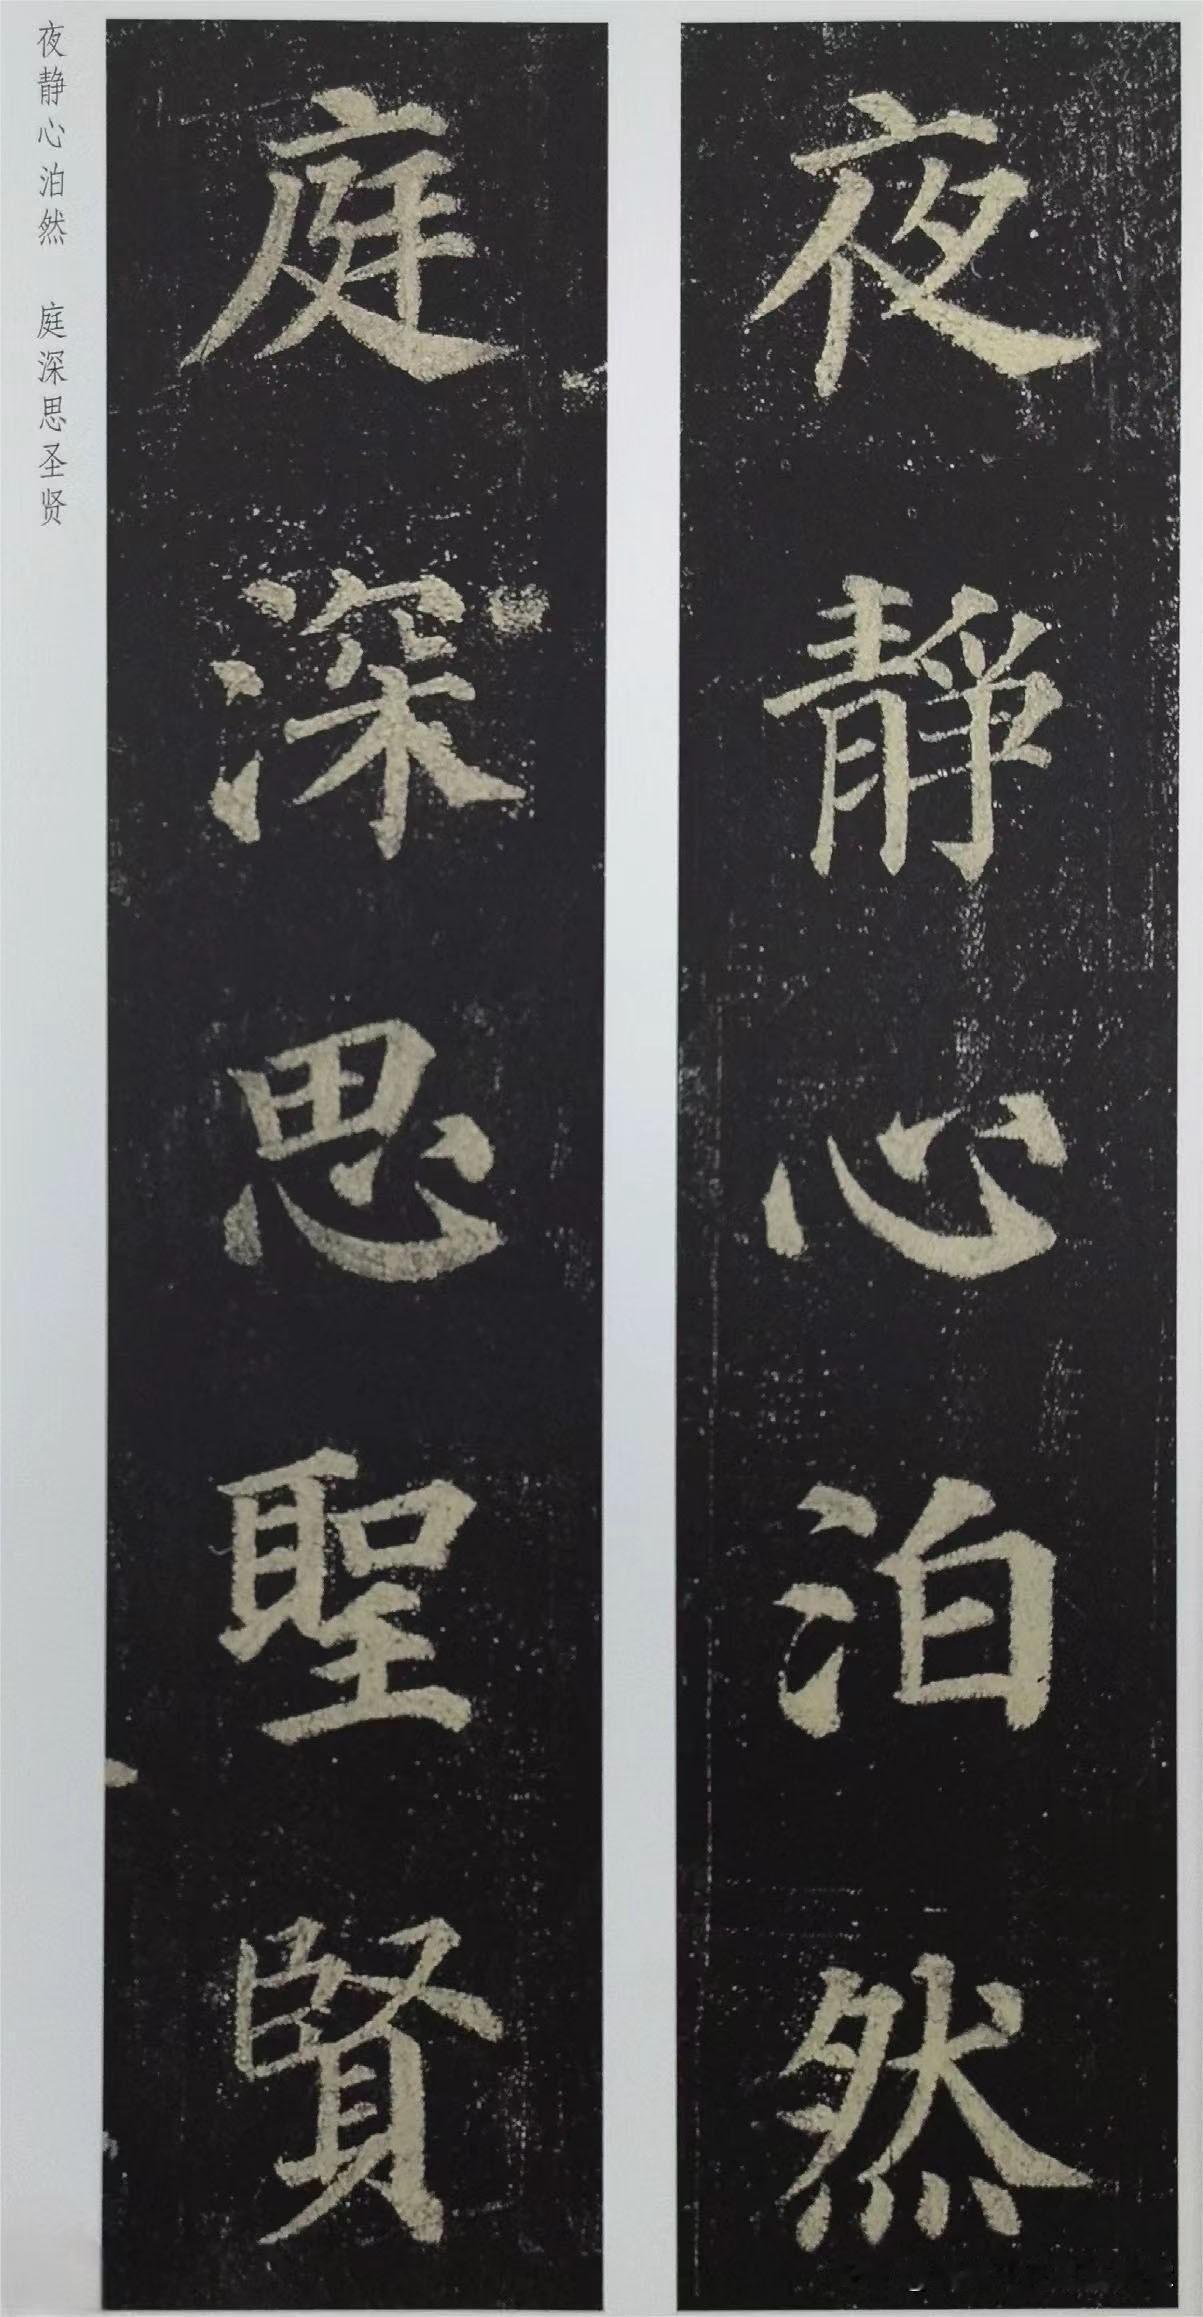 夜靜心泊然
庭深思聖賢
夜静心泊然 庭深思圣贤